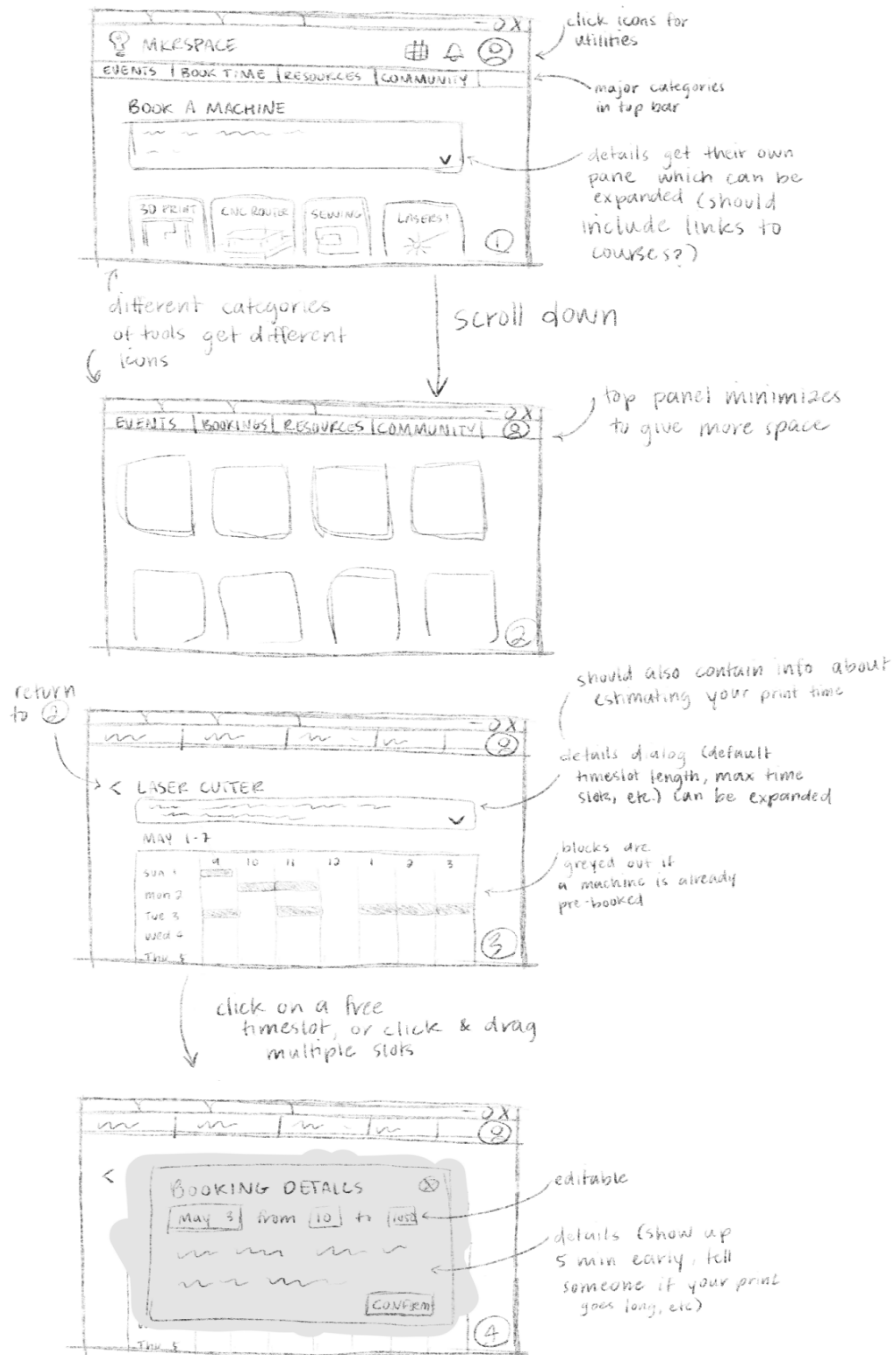 - O X
MKRSPACE
EVENTS | BOOK TIME | RESOURCES | COMMUNITY
BOOK A MACHINE
3D PRINT
CNC ROUTER
SEWING
LASERS!
1
click icons for
utilities
major categories
in top bar
details get their own
pane which can be
expanded (should
include links to
courses?)
different categories
of tools get different
icons
scroll down
- O X
EVENTS | BOOKINGS | RESOURCES | COMMUNITY
2
top panel minimizes
to give more space
return
to 2
- O X
< LASER CUTTER
MAY 1-7
9 10 11 12 1 2 3
Sun 1
mon 2
Tue 3
wed 4
Thu 5
3
should also contain info about
estimating your print time
details dialog (default
timeslot length, max time
slots, etc.) can be expanded
blocks are
greyed out if
a machine is already
pre-booked
click on a free
timeslot, or click & drag
multiple slots
- O X
<
BOOKING DETAILS
May 3 from 10 to
CONFIRM
Thu 5
4
editable
details (show up
5 min early, tell
someone if your print
goes long, etc)